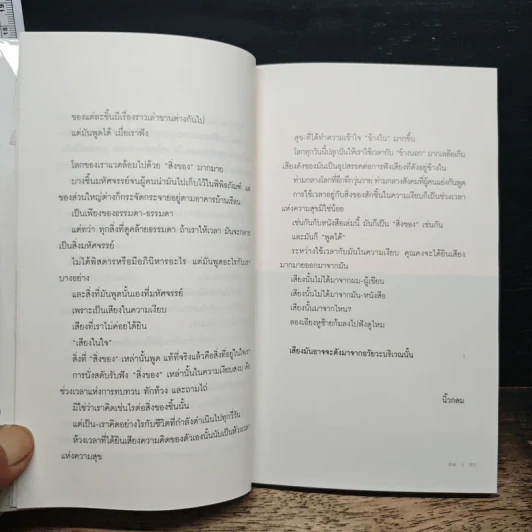 ของแต่ละชิ้นมีเรื่องราวเล่าขานต่างกันไป
แต่มันพูดได้ เมื่อเราฟัง
โลกของเราแวดล้อมไปด้วย "สิ่งของ" มากมาย
บางชิ้นมหัศจรรย์จนผู้คนนำมันไปเก็บไว้ในพิพิธภัณฑ์
ของส่วนใหญ่ต่างก็กระจัดกระจายอยู่ตามอาคารบ้านเรือน
เป็นเพียงของธรรมดา-ธรรมดา
แต่ทว่า ทุกสิ่งที่ดูคล้ายธรรมดา ถ้าเราให้เวลา มันจะกลาย
เป็นสิ่งมหัศจรรย์
ไม่ได้พิสดารหรือมีอภินิหารอะไร แต่มันพูดอะไรกับเรา
บางอย่าง
และสิ่งที่มันพูดนั้นเองที่มหัศจรรย์
เพราะเป็นเสียงในความเงียบ
เสียงที่เราไม่ค่อยได้ยิน
"เสียงในใจ"
สิ่งที่ "สิ่งของ" เหล่านั้นพูด แท้ที่จริงแล้วคือสิ่งที่อยู่ในใจเรา
การนั่งสดับรับฟัง "สิ่งของ" เหล่านั้นในความเงียบสงบ คือ
ช่วงเวลาแห่งการทบทวน ทักท้วง และถามไถ่
มิใช่ว่าเราคิดเช่นไรต่อสิ่งของชิ้นนั้น
แต่เป็น-เราคิดอย่างไรกับชีวิตที่กำลังดำเนินไปทุกวี่วัน
ห้วงเวลาที่ได้ยินเสียงความคิดของตัวเองนั้นนับเป็นห้วงเวลา
แห่งความสุข
สุข-ที่ได้ทำความเข้าใจ "ข้างใน" มากขึ้น
โลกทุกวันนี้ปลุกปั่นให้เราใช้เวลากับ "ข้างนอก" มากเหลือเกิน
เสียงดังของมันเป็นอุปสรรคต่อการฟังเสียงที่ดังอยู่ข้างใน
ท่ามกลางโลกที่อึกทึกวุ่นวาย ท่ามกลางสังคมที่ผู้คนแย่งกันพูด
การใช้เวลาอยู่กับสิ่งของสักชิ้นในความเงียบก็เป็นช่วงเวลา
แห่งความสุขมิใช่น้อย
เช่นกันกับหนังสือเล่มนี้ มันก็เป็น "สิ่งของ" เช่นกัน
และมันก็ "พูดได้"
ระหว่างใช้เวลากับมันในความเงียบ คุณคงจะได้ยินเสียง
มากมายออกมาจากมัน
เสียงนั้นไม่ได้มาจากผม-ผู้เขียน
เสียงนั้นไม่ได้มาจากมัน-หนังสือ
เสียงนั้นมาจากไหน?
ลองเอียงหูซ้ายก้มลงไปฟังดูไหม
เสียงมันอาจจะดังมาจากอวัยวะบริเวณนั้น
นิ้วกลม